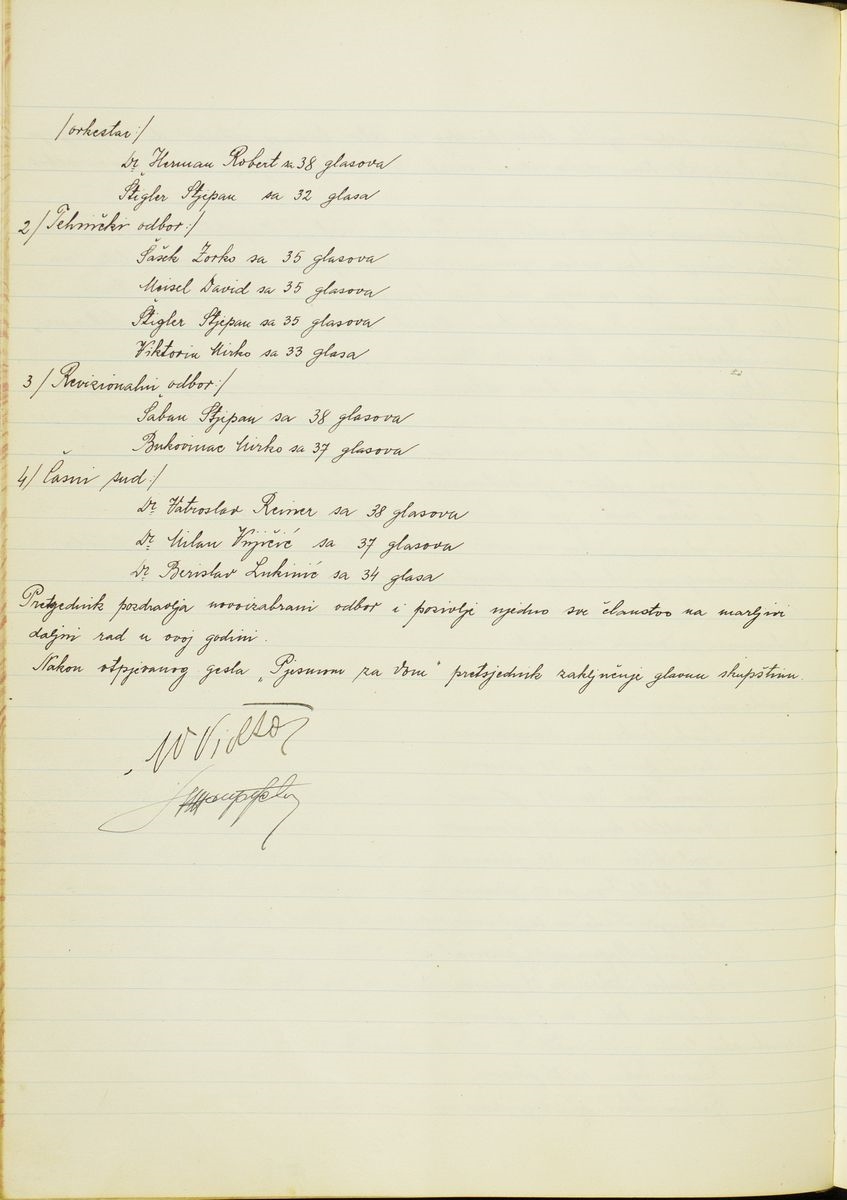 /orkestar:/
Dr Herman Robert sa 38 glasova
Štigler Stjepan sa 32 glasa
2/ Tehnički odbor:/
Šašek Zorko sa 35 glasova
Meisel David sa 35 glasova
Štigler Stjepan sa 35 glasova
Viktorin Mirko sa 33 glasa
3/ Revizionalni odbor:/
Šaban Stjepan sa 38 glasova
Bukovinac Mirko sa 37 glasova
4/ Časni sud:/
Dr Vatroslav Reiner sa 38 glasova
Dr Milan Vujičić sa 37 glasova
Dr Berislav Lukinić sa 34 glasa
Pretsjednik pozdravlja novoizabrani odbor i pozivlje ujedno sve članstvo na marljivi
daljni rad u ovoj godini.
Nakon otpjevanog gesla „Pjesmom za dom" pretsjednik zaključuje glavnu skupštinu.